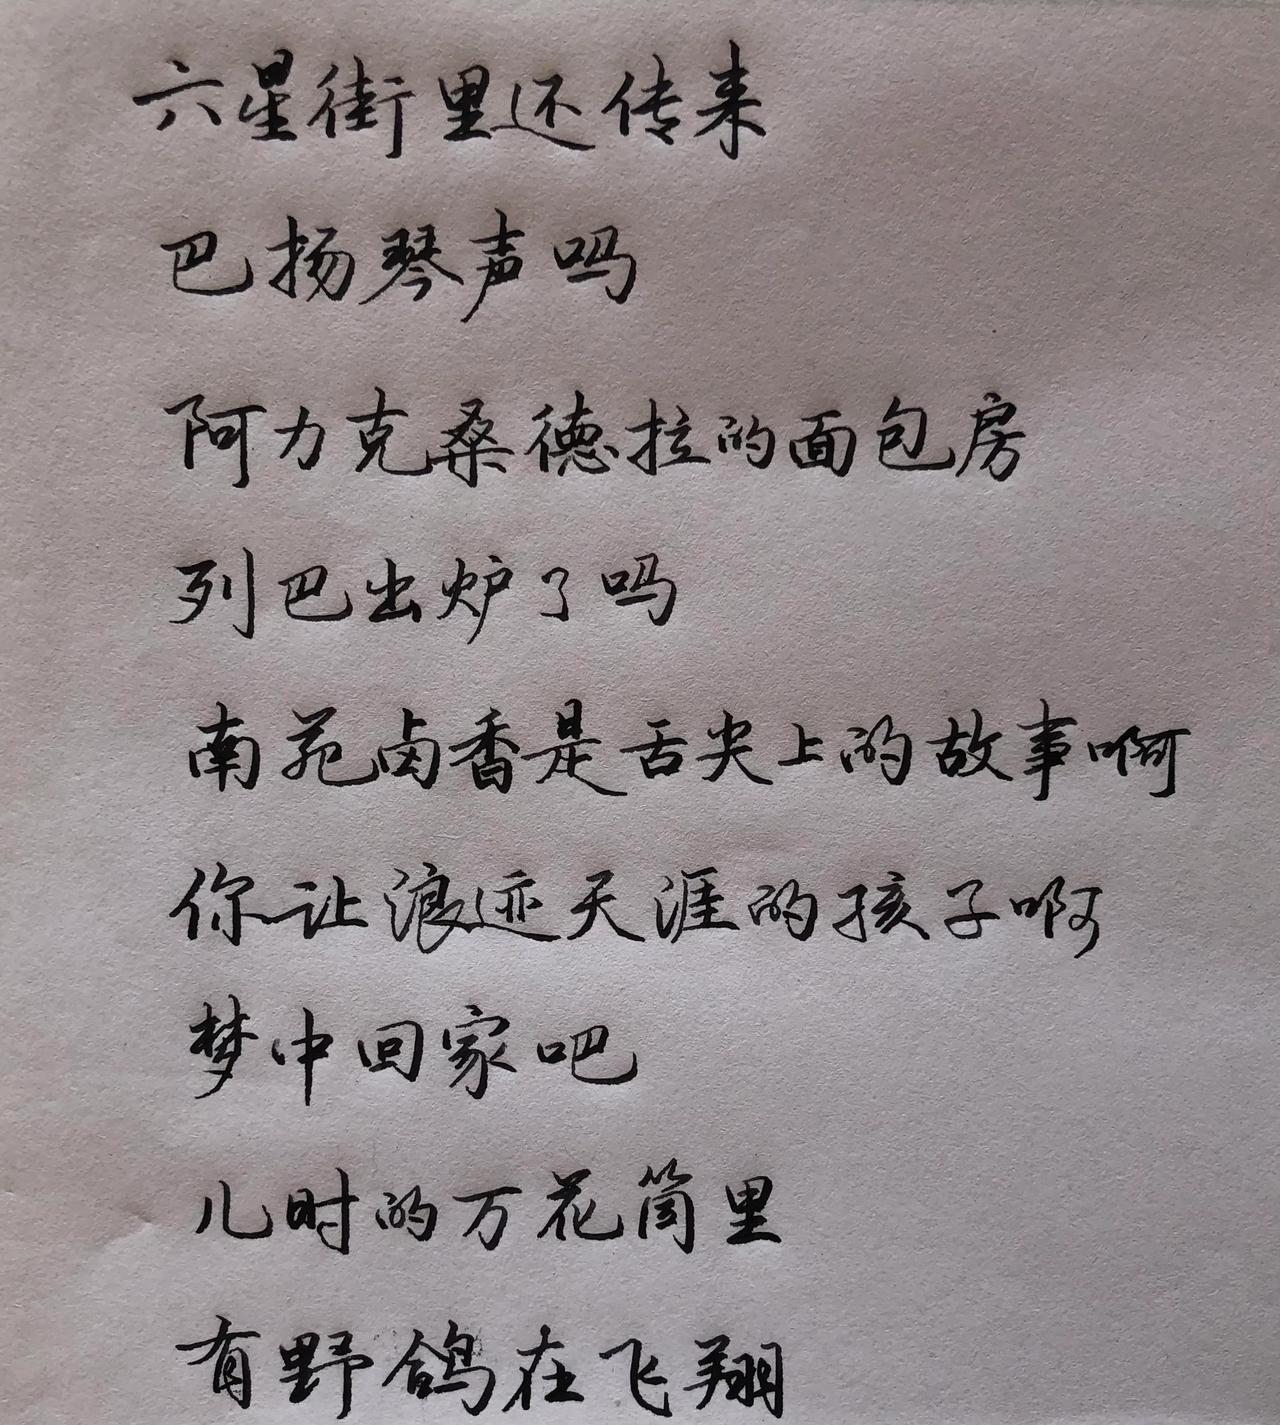 六星街里还传来
巴扬琴声吗
阿力克桑德拉的面包房
列巴出炉了吗
南苑卤香是舌尖上的故事啊
你让浪迹天涯的孩子啊
梦中回家吧
儿时的万花筒里
有野鸽在飞翔